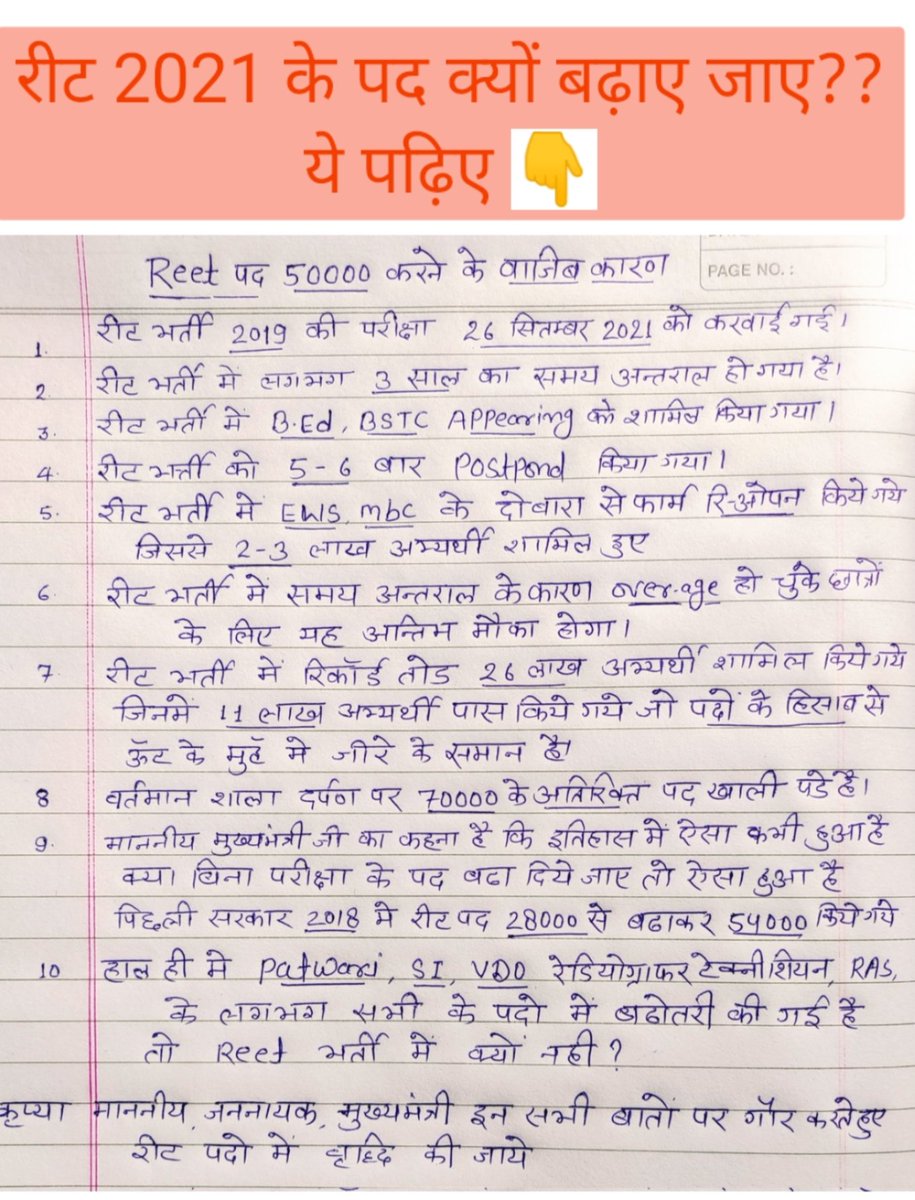 रीट 2021 के पद क्यों बढ़ाए जाए??
ये पढ़िए 👇
PAGE NO. :
Reet पद 50000 करने के वाजिब कारण
1. रीट भर्ती 2019 की परीक्षा 26 सितम्बर 2021 को करवाई गई।
2 रीट भर्ती में लगभग 3 साल का समय अन्तराल हो गया है।
3. रीट भर्ती में B.Ed, BSTC Appearing को शामिल किया गया।
4. रीट भर्ती को 5-6 बार Postpond किया गया।
5. रीट भर्ती में EWS, mbc के दोबारा से फार्म रि-ओपन किये गये
जिससे 2-3 लाख अभ्यर्थी शामिल हुए
6. रीट भर्ती में समय अन्तराल के कारण over-age हो चुके छात्रों
के लिए यह अन्तिम मौका होगा।
7. रीट भर्ती में रिकॉर्ड तोड 26 लाख अभ्यर्थी शामिल किये गये
जिनमें 11 लाख अभ्यर्थी पास किये गये जो पदों के हिसाब से
ऊँट के मुहँ मे जीरे के समान है।
8 वर्तमान शाला दर्पण पर 70000 के अतिरिक्त पद खाली पडे है।
9. माननीय मुख्यमंत्री जी का कहना है कि इतिहास में ऐसा कभी हुआ है
क्या बिना परीक्षा के पद बढा दिये जाए तो ऐसा हुआ है
पिछली सरकार 2018 मे रीट पद 28000 से बढाकर 54000 किये गये
10 हाल ही मे Patwari, SI, VDO रेडियोग्राफर टेक्नीशियन, RAS,
के लगभग सभी के पदो में बढोतरी की गई है
तो Reet भर्ती में क्यों नही?
कृप्या माननीय, जननायक, मुख्यमंत्री इन सभी बातों पर गौर करते हुए
रीट पदो में वृध्दि की जाये